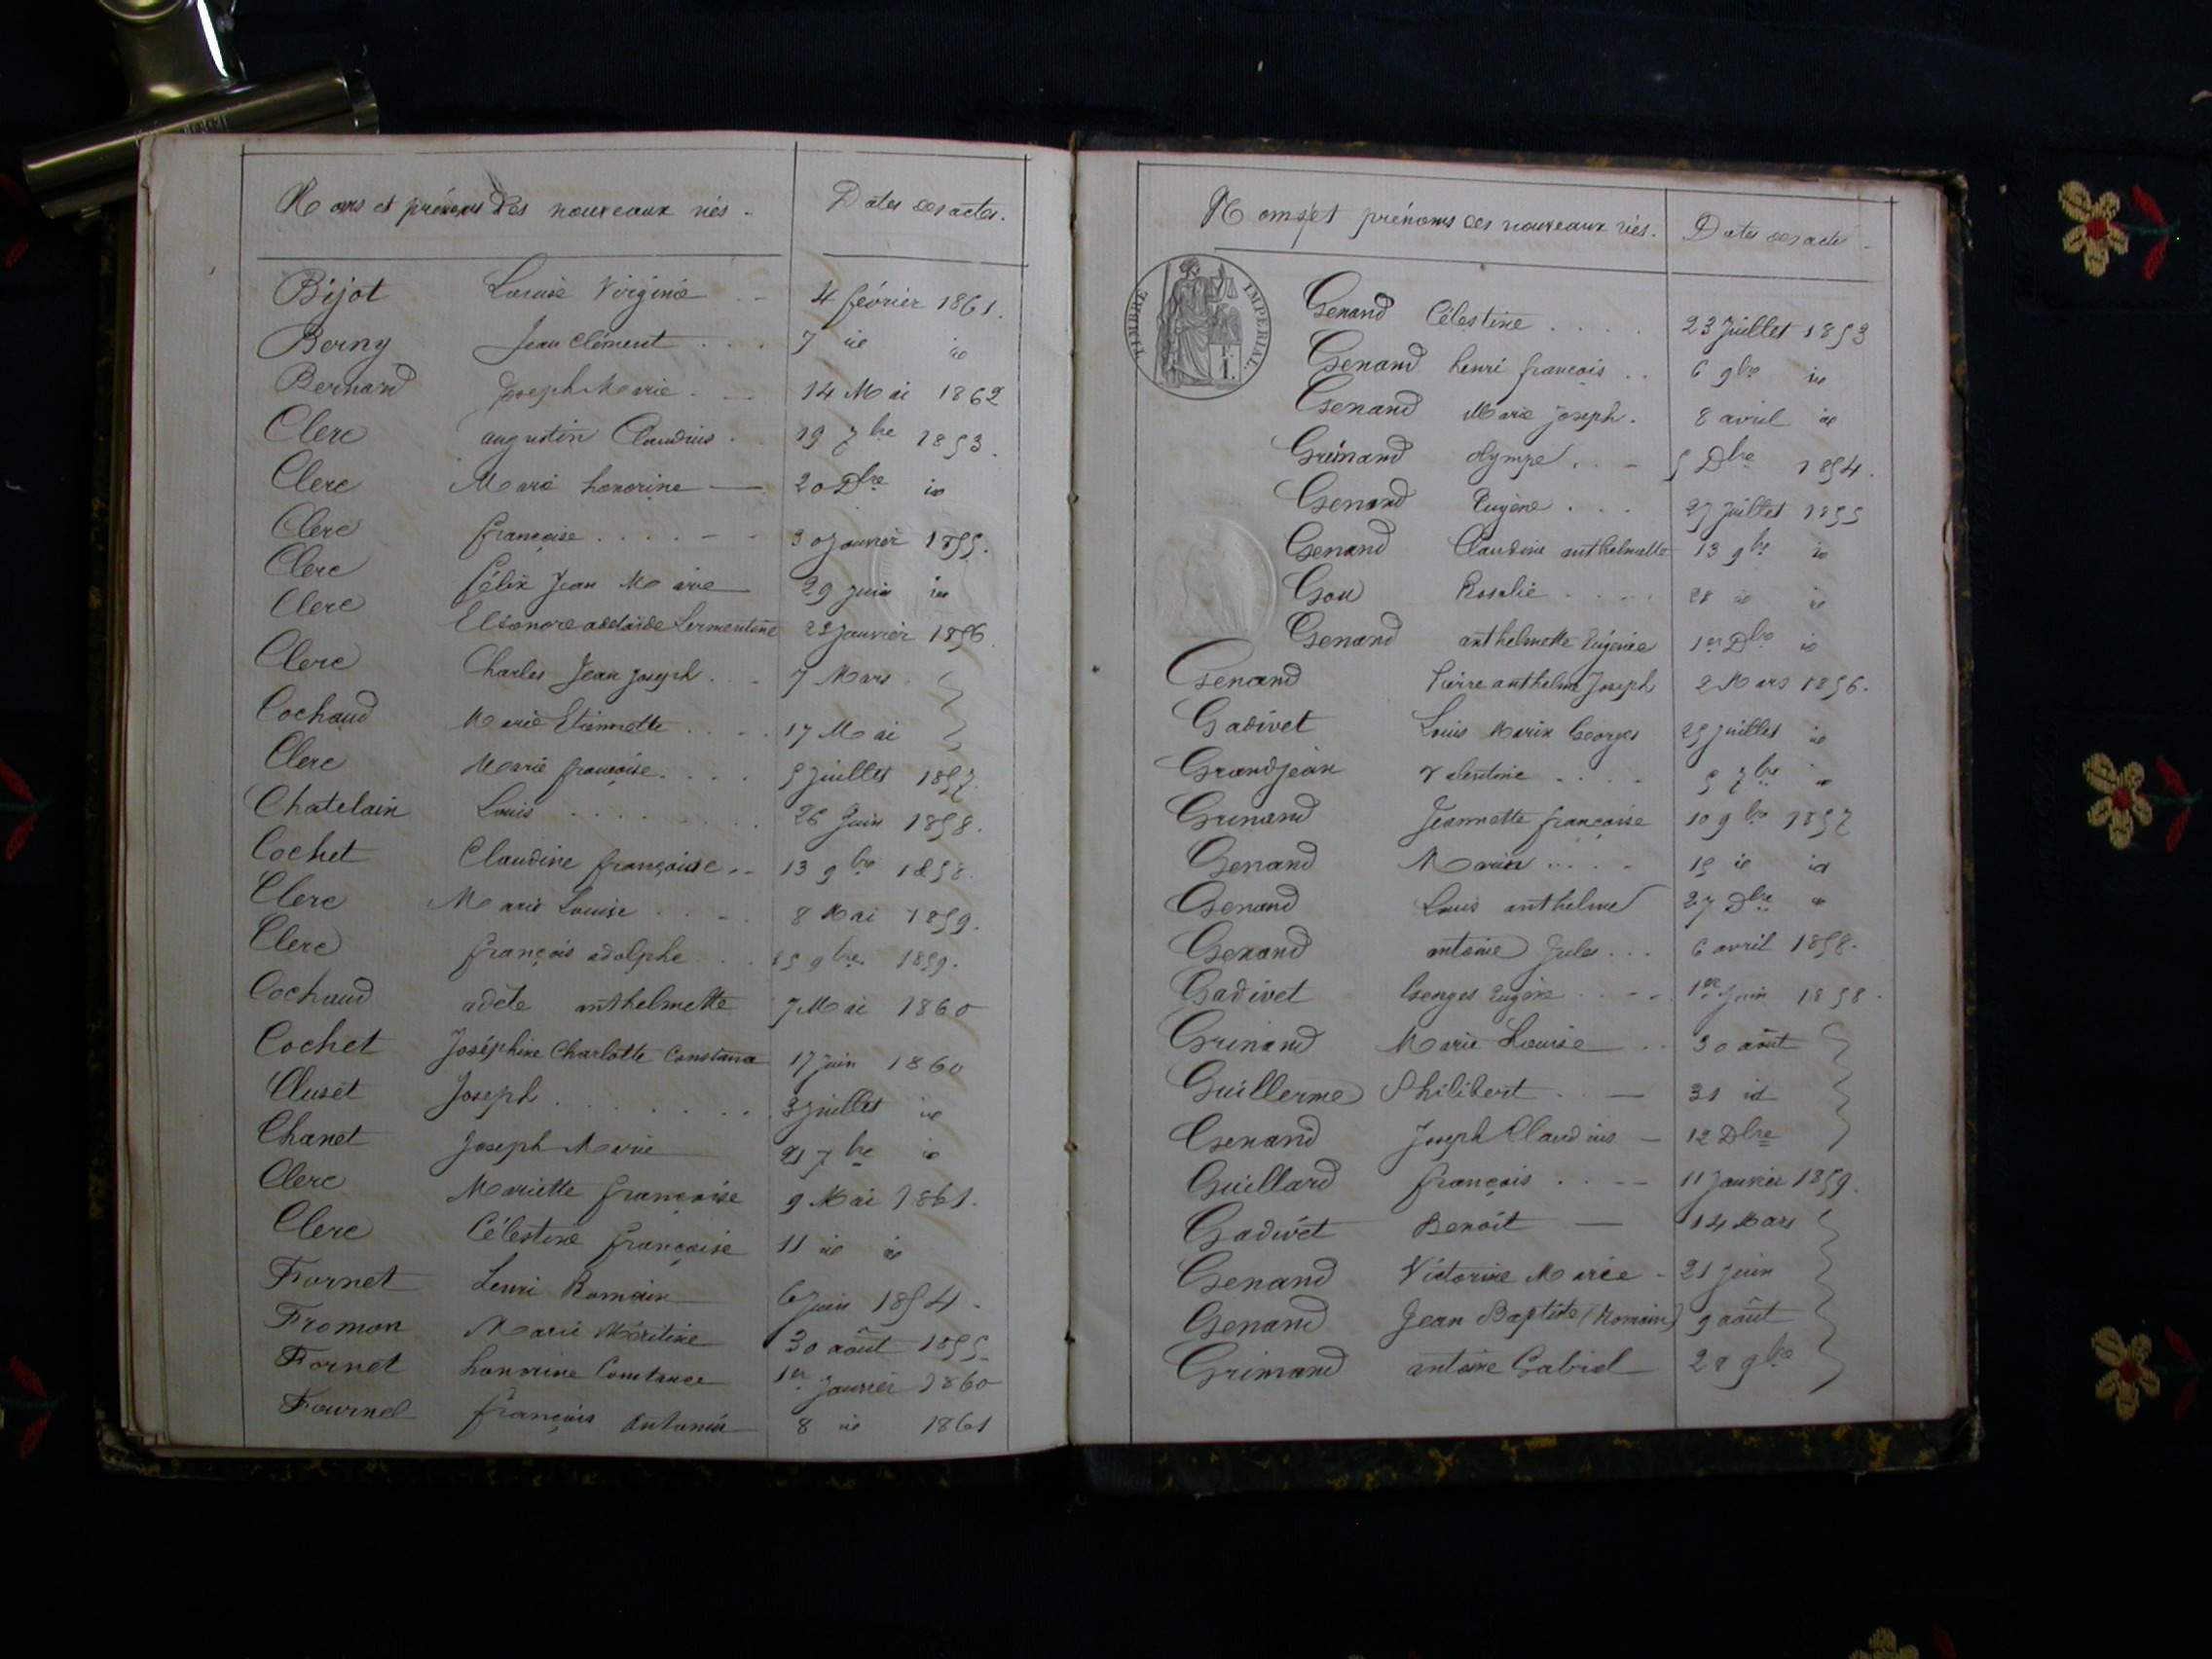 Noms et prénoms des nouveaux nés. Dates des actes.
Bijot Louise Virginie 4 février 1861.
Berny Jean Clément 7 id id
Bernard Joseph Marie 14 Mai 1862
Clerc augustin Claudius 19 7bre 1853.
Clerc Marie honorine 20 Dbre id
Clerc françoise 30 Janvier 1855.
Clerc félix Jean Marie 29 juin id
Clerc Eléonore adélaïde 22 Janvier 1856.
Clerc Charles Jean joseph 7 Mars
Cochaud Marie Etiennette 17 Mai
Clerc Marie françoise 5 juillet 1857.
Chatelain Louis 26 Juin 1858.
Cochet Claudine françoise 13 9bre 1858.
Clerc Marie Louise 8 Mai 1859.
Clerc françois adolphe 9bre 1859.
Cochaud adèle anthelmette 7 Mai 1860
Cochet Joséphine Charlotte Constance 17 juin 1860
Cluset Joseph 3 juillet id
Chanet Joseph Marie 21 7bre id
Clerc Mariette françoise 9 Mai 1861.
Clerc Célestine françoise 11 id id
Fornet Henri Romain 6 Juin 1854.
Fromon Marie 30 août 1855.
Fornet honorine Constance 1er Janvier 1860
Fournel françois Antonin 8 id 1861
Noms et prénoms des nouveaux nés. Dates des actes
TIMBRE IMPERIAL.
Genand Célestine 23 Juillet 1853
Genand henri françois 6 9bre id
Genand Marie Joseph. 8 avril id
Grimand olympe 5 Dbre 1854.
Genand Eugène 27 Juillet 1855
Genand Claudine anthelmette 13 9bre id
Gou Rosalie 28 id id
Genand anthelmette Eugénie 1er Dbre id
Genand Pierre anthelme Joseph 2 Mars 1856.
Gadivet Louis Marie Georges 25 Juillet id
Grandjean Valentine 5 7bre id
Grimand Jeannette françoise 10 9bre 1857
Genand Marie 15 id id
Genand Louis anthelme 27 Dbre id
Genand antoine Jules 6 avril 1858.
Gadivet Georges Eugène 1er Juin 1858.
Grimand Marie Louise 30 août
Guillerme Philibert 31 id
Genand Joseph Claudius 12 Dbre
Guillard françois 11 Janvier 1859.
Gadivet Benoît 14 Mars
Genand Victorine Marie 21 Juin
Genand Jean Baptiste (Romain) 9 août
Grimand antoine Gabriel 28 9bre